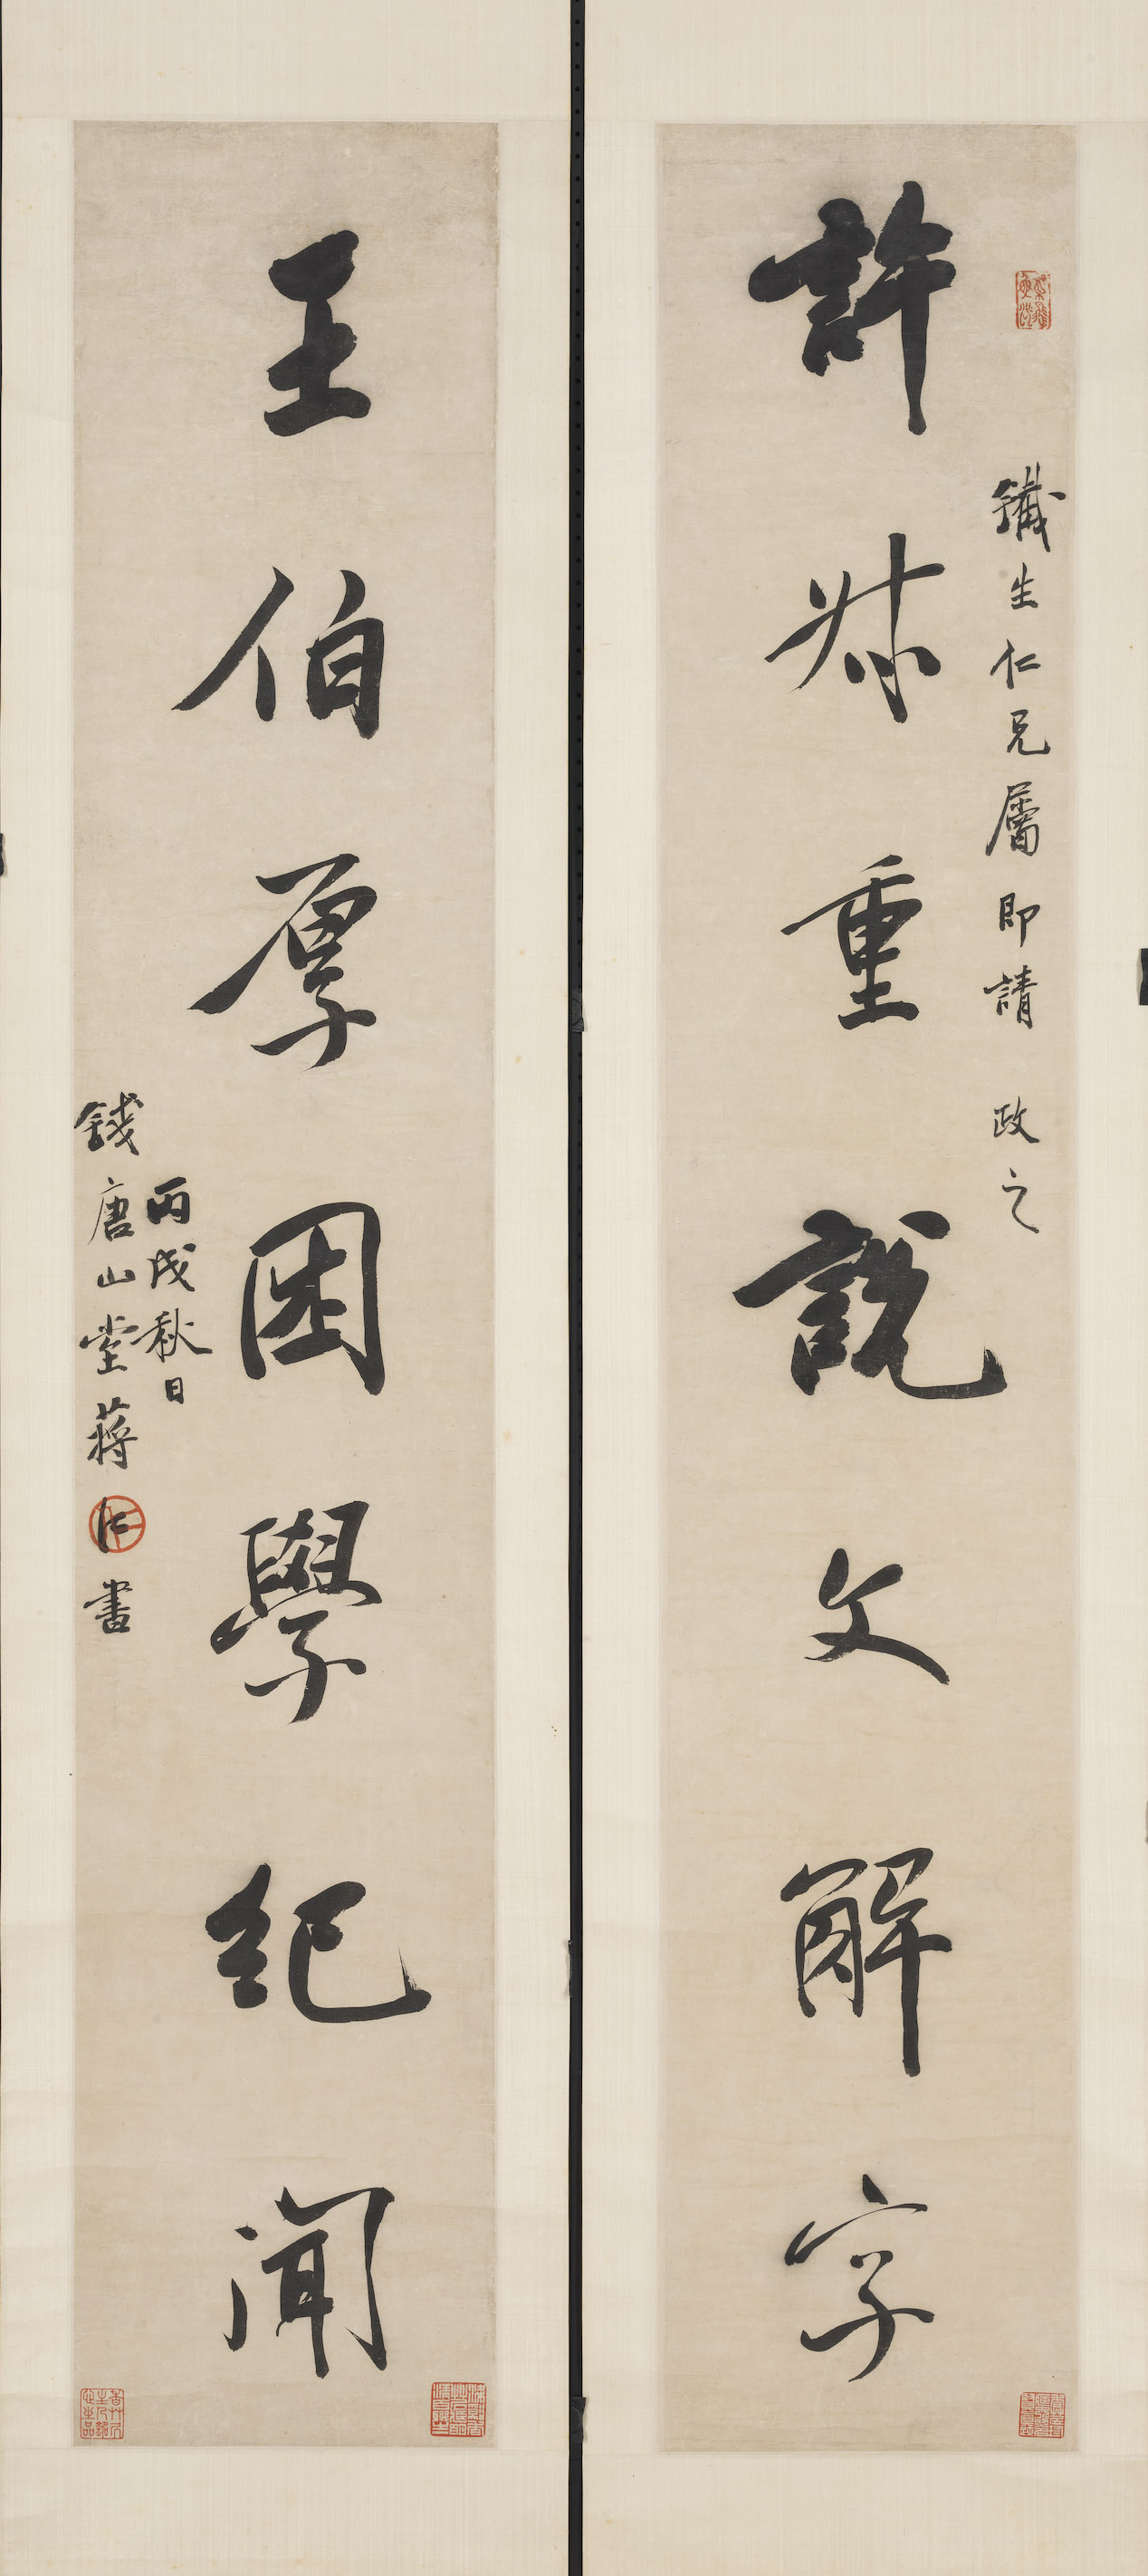 許尗重說文解字
鐵生仁兄屬即請 政之
王伯厚困學紀聞
丙戌秋日
錢唐山堂蔣仁書